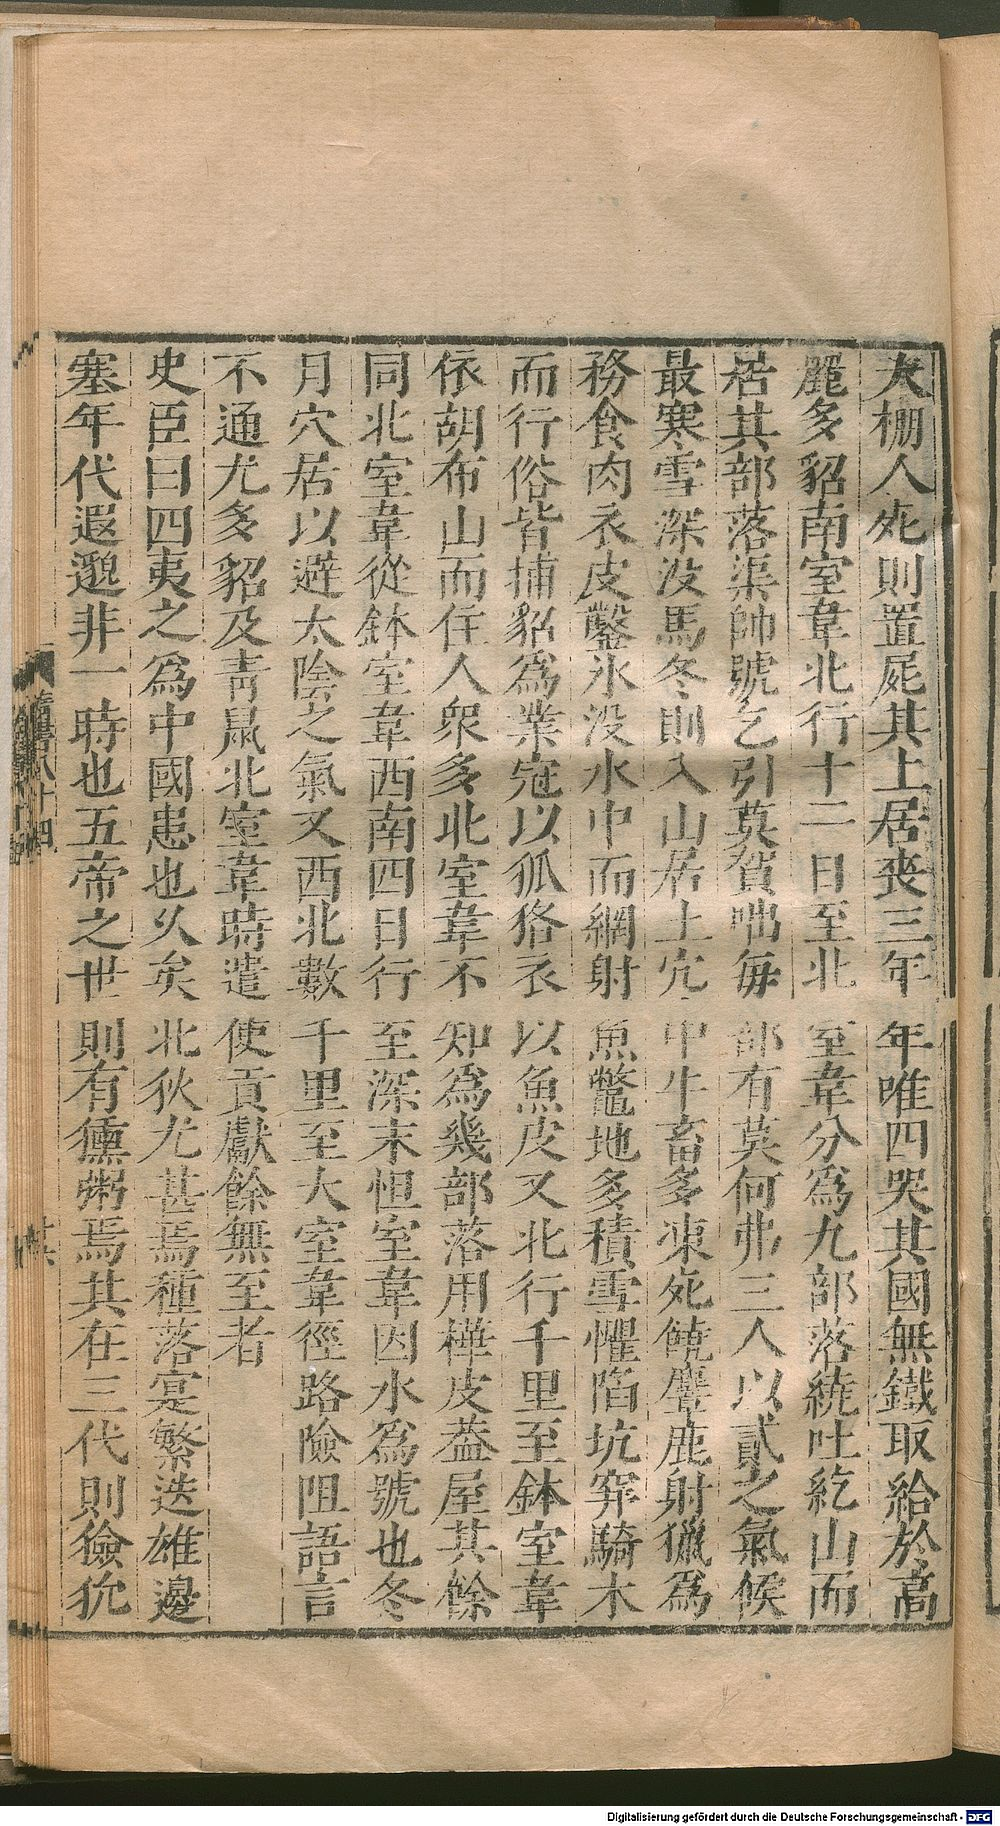 大棚人死則置屍其上居喪三年年唯四哭其國無鐵取給於高
麗多貂南室韋北行十一日至北室韋分爲九部落繞吐紇山而
居其部落渠帥號乞引莫賀咄每部有莫何弗三人以貳之氣候
最寒雪深没馬冬則入山居土穴中牛畜多凍死饒麞鹿射獵爲
務食肉衣皮鑿氷没水中而網射魚鼈地多積雪懼陷坑穽騎木
而行俗皆捕貂爲業冠以狐狢衣以魚皮又北行千里至鉢室韋
依胡布山而住人衆多北室韋不知爲幾部落用樺皮葢屋其餘
同北室韋從鉢室韋西南四日行至深末怛室韋因水爲號也冬
月穴居以避太陰之氣又西北數千里至大室韋徑路險阻語言
不通尤多貂及青鼠北室韋時遣使貢獻餘無至者
史臣曰四夷之爲中國患也久矣北狄尤甚焉種落寔繁迭雄邊
塞年代遐邈非一時也五帝之世則有獯粥焉其在三代則獫狁
隋書八十四
Digitalisierung gefördert durch die Deutsche Forschungsgemeinschaft - DFG